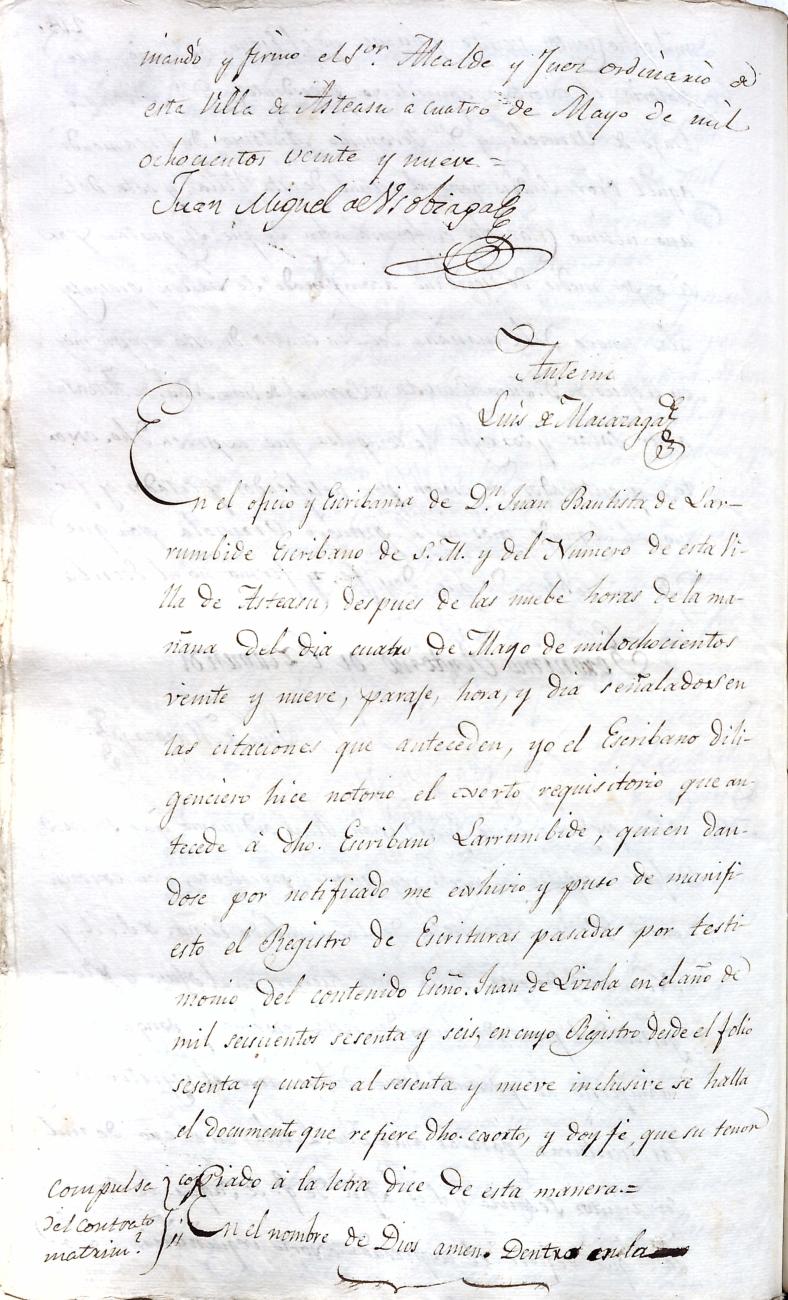 mandó y firmo el Sor. Alcalde y Juez ordinario de
esta Villa de Asteasu á cuatro de Mayo de mil
ochocientos veinte y nueve =
Juan Miguel de Usobiaga
Antemi
Luis de Macazaga
En el oficio y Escribania de Dn. Juan Bautista de Lar-
rumbide Escribano de S. M. y del Numero de esta Vi-
lla de Asteasu, despues de las nuebe horas de la ma-
ñana del dia cuatro de Mayo de mil ochocientos
veinte y nueve, paraje, hora, y dia señalados en
las citaciones que anteceden, yo el Escribano dili-
genciero hice notorio el exorto requisitorio que an-
tecede á dho. Escribano Larrumbide, quien dan-
dose por notificado me exhivio y puso de manifi-
esto el Registro de Escrituras pasadas por testi-
monio del contenido Esño. Juan de Lizola en el año de
mil seiscientos sesenta y seis, en cuyo Registro desde el folio
sesenta y cuatro al sesenta y nueve inclusive se halla
el documento que refiere dho. exorto, y doy fé, que su tenor
copiado á la letra dice de esta manera.=
Compulsa
del contrato
matrim.
En el nombre de Dios amen. Dentro en la